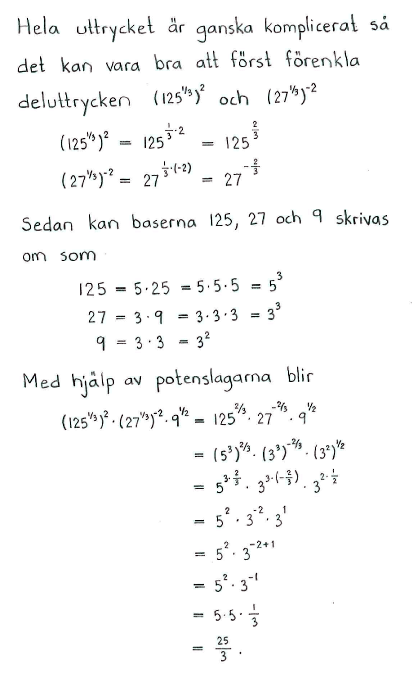 Hela uttrycket är ganska komplicerat så
det kan vara bra att först förenkla
deluttrycken (125^(1/3))^2 och (27^(1/3))^-2
(125^(1/3))^2 = 125^(1/3·2) = 125^(2/3)
(27^(1/3))^-2 = 27^(1/3·(-2)) = 27^(-2/3)
Sedan kan baserna 125, 27 och 9 skrivas
om som
125 = 5·25 = 5·5·5 = 5^3
27 = 3·9 = 3·3·3 = 3^3
9 = 3·3 = 3^2
Med hjälp av potenslagarna blir
(125^(1/3))^2·(27^(1/3))^-2·9^(1/2) = 125^(2/3)·27^(-2/3)·9^(1/2)
= (5^3)^(2/3)·(3^3)^(-2/3)·(3^2)^(1/2)
= 5^(3·2/3)·3^(3·(-2/3))·3^(2·1/2)
= 5^2·3^-2·3^1
= 5^2·3^(-2+1)
= 5^2·3^-1
= 5·5·1/3
= 25/3.